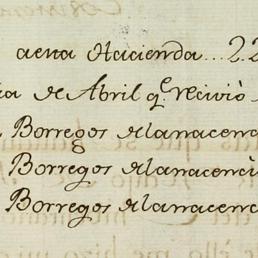 aena Hacienda... 2.2
de Abril q.e recivió
Borregos delanacenc
Borregos delanacenci
Borregos delanacenc